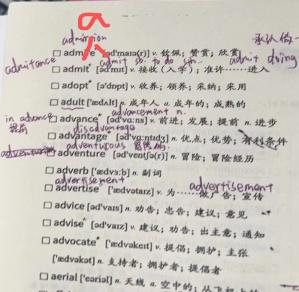 a
admission
□ admire [əd'maɪə(r)] v. 钦佩; 赞赏; 欣赏 承认做
admittance admit sb. to do sth. admit doing
□ admit* [əd'mɪt] v. 接收(入学); 准许……进入
□ adopt* [ə'dɒpt] v. 收养; 领养; 采纳; 采用
□ adult ['ædʌlt] n. 成年人 a. 成年的; 成熟的
in advance advancement n.
□ advance* [əd'vɑːns] v. 前进; 发展; 提前 n. 进步
disadvantage
□ advantage* [əd'vɑːntɪdʒ] n. 优点; 优势; 有利条件
adventurous
□ adventure [əd'ventʃə(r)] n. 冒险; 冒险经历
□ adverb ['ædvɜːb] n. 副词
advertisement advertisement
□ advertise* ['ædvətaɪz] v. 为……做广告; 宣传
□ advice [əd'vaɪs] n. 劝告; 忠告; 建议; 意见
□ advise* [əd'vaɪz] v. 建议; 劝告; 出主意; 通知
□ advocate* ['ædvəkeɪt] v. 提倡; 拥护; 主张
['ædvəkət] n. 支持者; 拥护者; 提倡者
□ aerial ['eəriəl] n. 天线 a. 空中的;